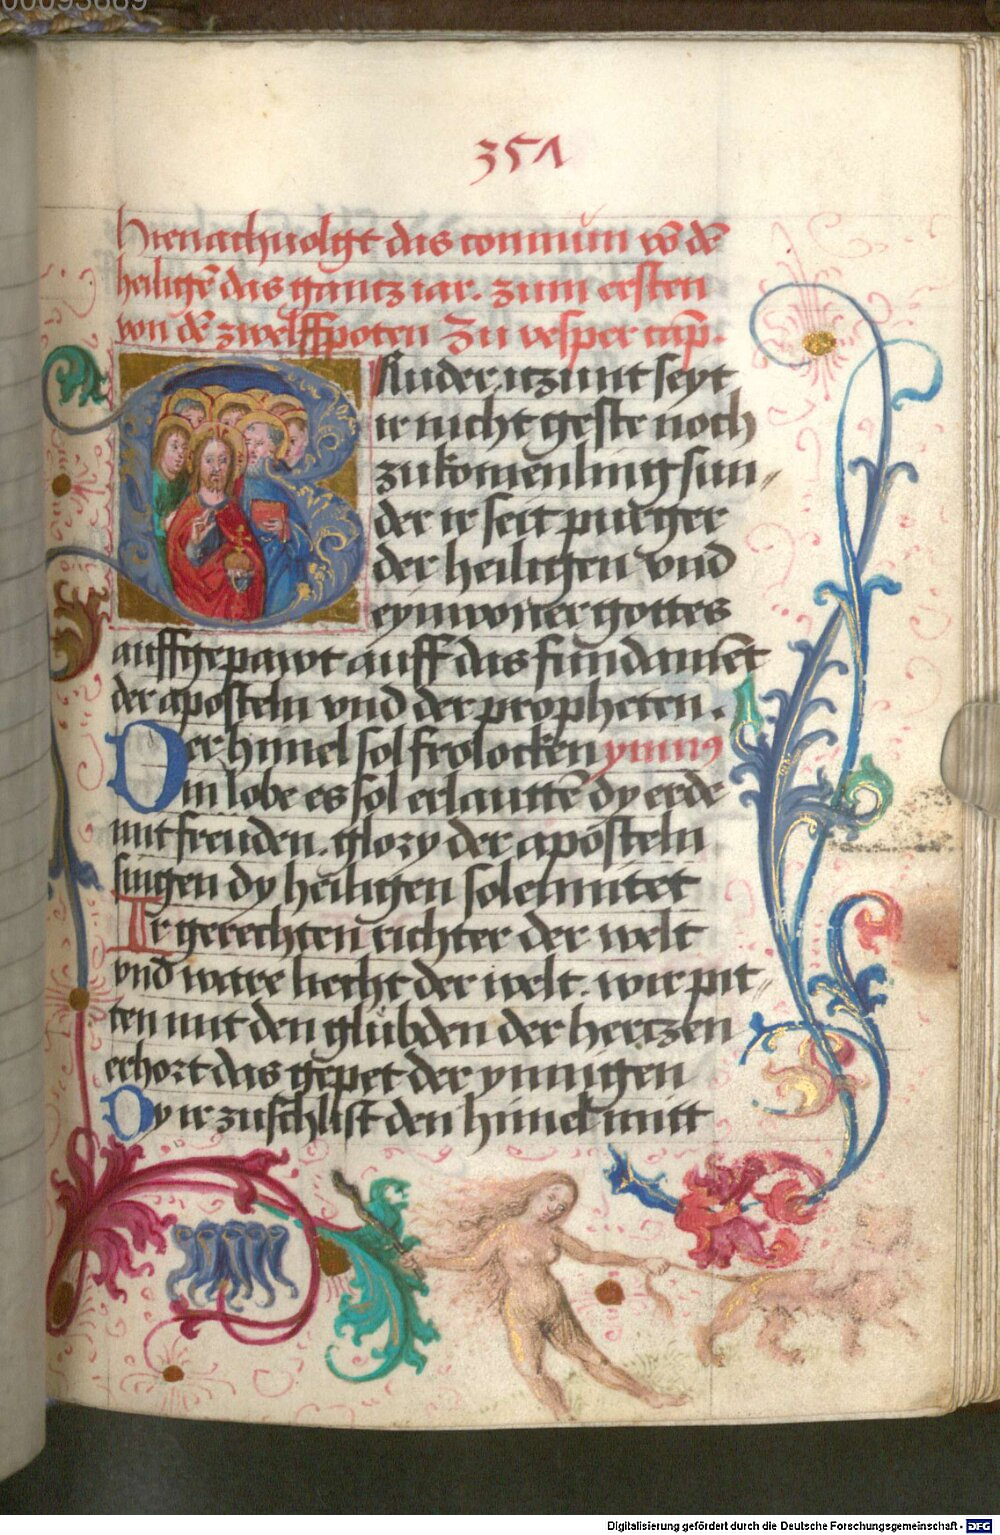 00093669
351
hienachuolgt das commu̅n vo̅ de̅
heilige̅ das gantz iar. zum ersten
von de̅ zwelffpoten Zu vesper cap̅.
Bruder, itzunt seyt
ir nicht geste noch
zukome̅nling sun„
der ir seit purger
der heiligen vnd
eynwoner gottes
auffgepawt auff das fundame̅t
der aposteln vnd der propheten.
Der himel sol frolocken ymnus
Mi̅n lobe es sol erlautte̅ dy erde
mit freuden. glory der aposteln
singen dy heiligen solemnitet
Ir gerechten richter der welt
vnd ware liecht der welt. wir pit„
ten mit den glubden der hertzen
erhort das gepet der ynnigen
Dy ir zuschlist den himel mitt
Digitalisierung gefördert durch die Deutsche Forschungsgemeinschaft - DFG